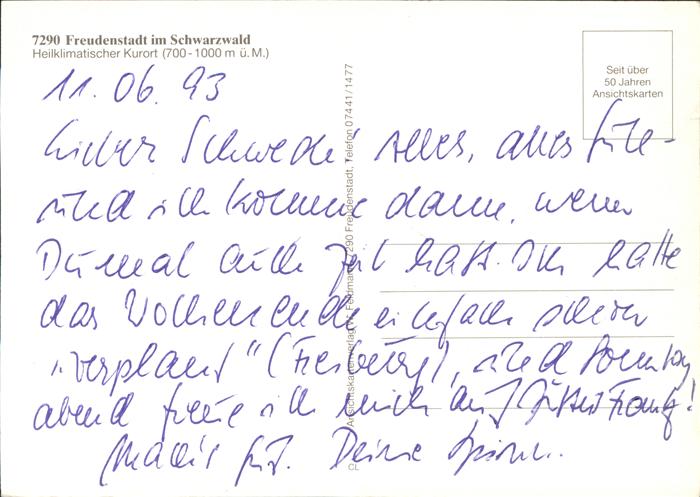 7290 Freudenstadt im Schwarzwald
Heilklimatischer Kurort (700-1000 m ü. M.)
Seit über
50 Jahren
Ansichtskarten
11.06.93
Lieber Schwede! Alles, alles Gute -
und ich komme dann, wenn
Du mal auch Zeit hast. Ich hatte
das Wochenende einfach schon
"verplant" (Freiburg), und Sonntag
abend freue ich mich auf
Mach's gut. Deine
Ansichtskartenverlag 7290 Freudenstadt, Telefon 07441/1477
CL